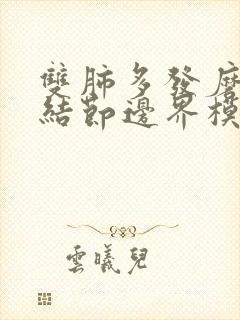 雙肺多發磨
結節邊界模
雲曦兒